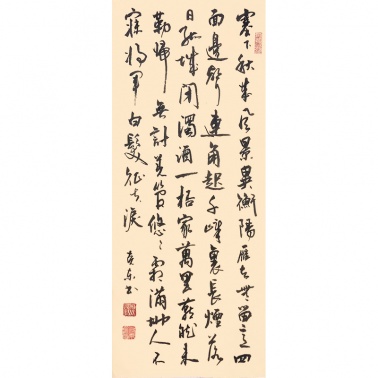 塞下秋来風景異衡陽雁去無留意四
面邊聲連角起千嶂裏長煙落
日孤城閉濁酒一杯家萬里燕然未
勒歸無計羌管悠々霜滿地人不
寐將軍白髮征夫淚
东书